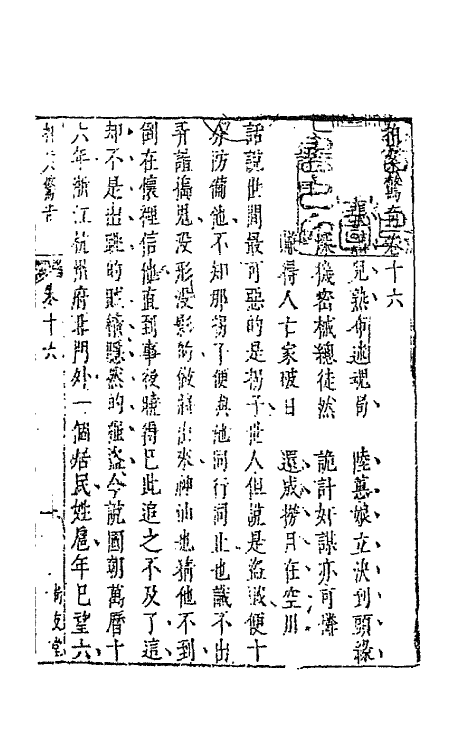 拍案驚奇卷十六
兒熟布迷魂局　陸蕙娘立決到頭緣
深機密械總徒然　詭計奸謀亦可憐
賺得人亡家破日　還成撈月在空川
話說世間最可惡的是拐子世人但說是盜賊便十
分防備他不知那拐子便與他同行同止也識不出
弄諠搗鬼沒形沒影的做將出來神仙也猜他不到
倒在懷裡信他直到事後曉得已此追之不及了這
却不是出跳的賊精隱然的強盜今說國朝萬曆十
六年浙江杭州府北門外一個居民姓扈年已望六
拍案驚奇　卷十六　一　尚友堂